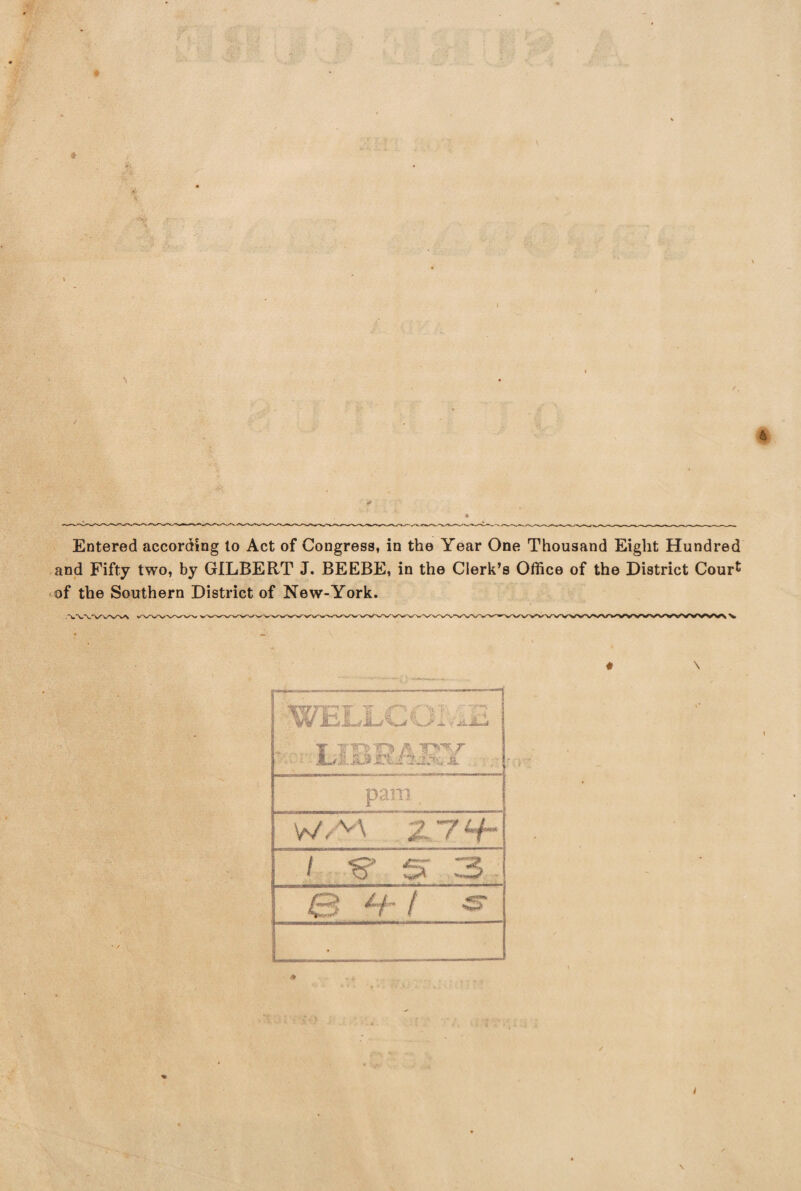 Entered according to Act of Congress, in the Year One Thousand Eight Hundred
and Fifty two, by GILBERT J. BEEBE, in the Clerk's Office of the District Court
of the Southern District of New-York.
WELLCOME
LIBRARY
pam
WM 274
1853
B41s